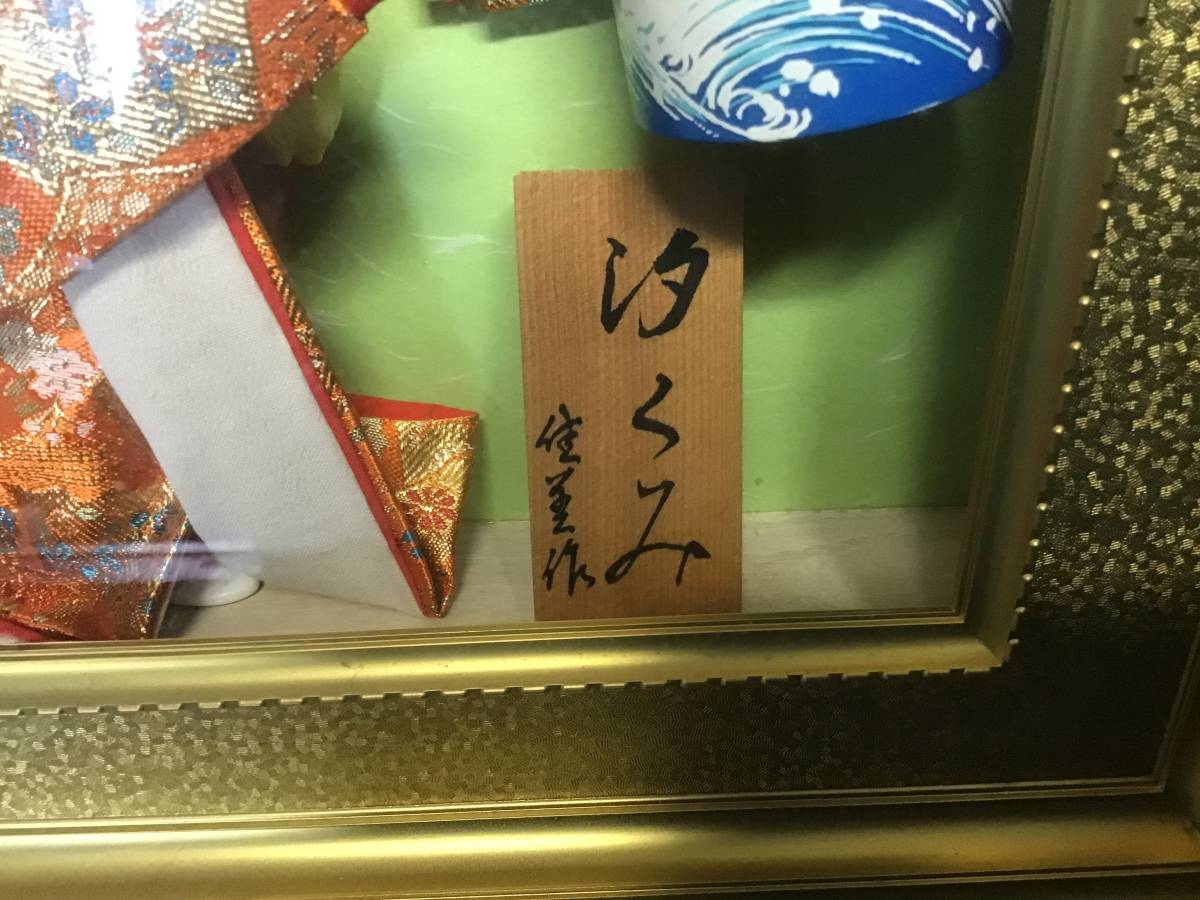 汐くみ
佳兰作